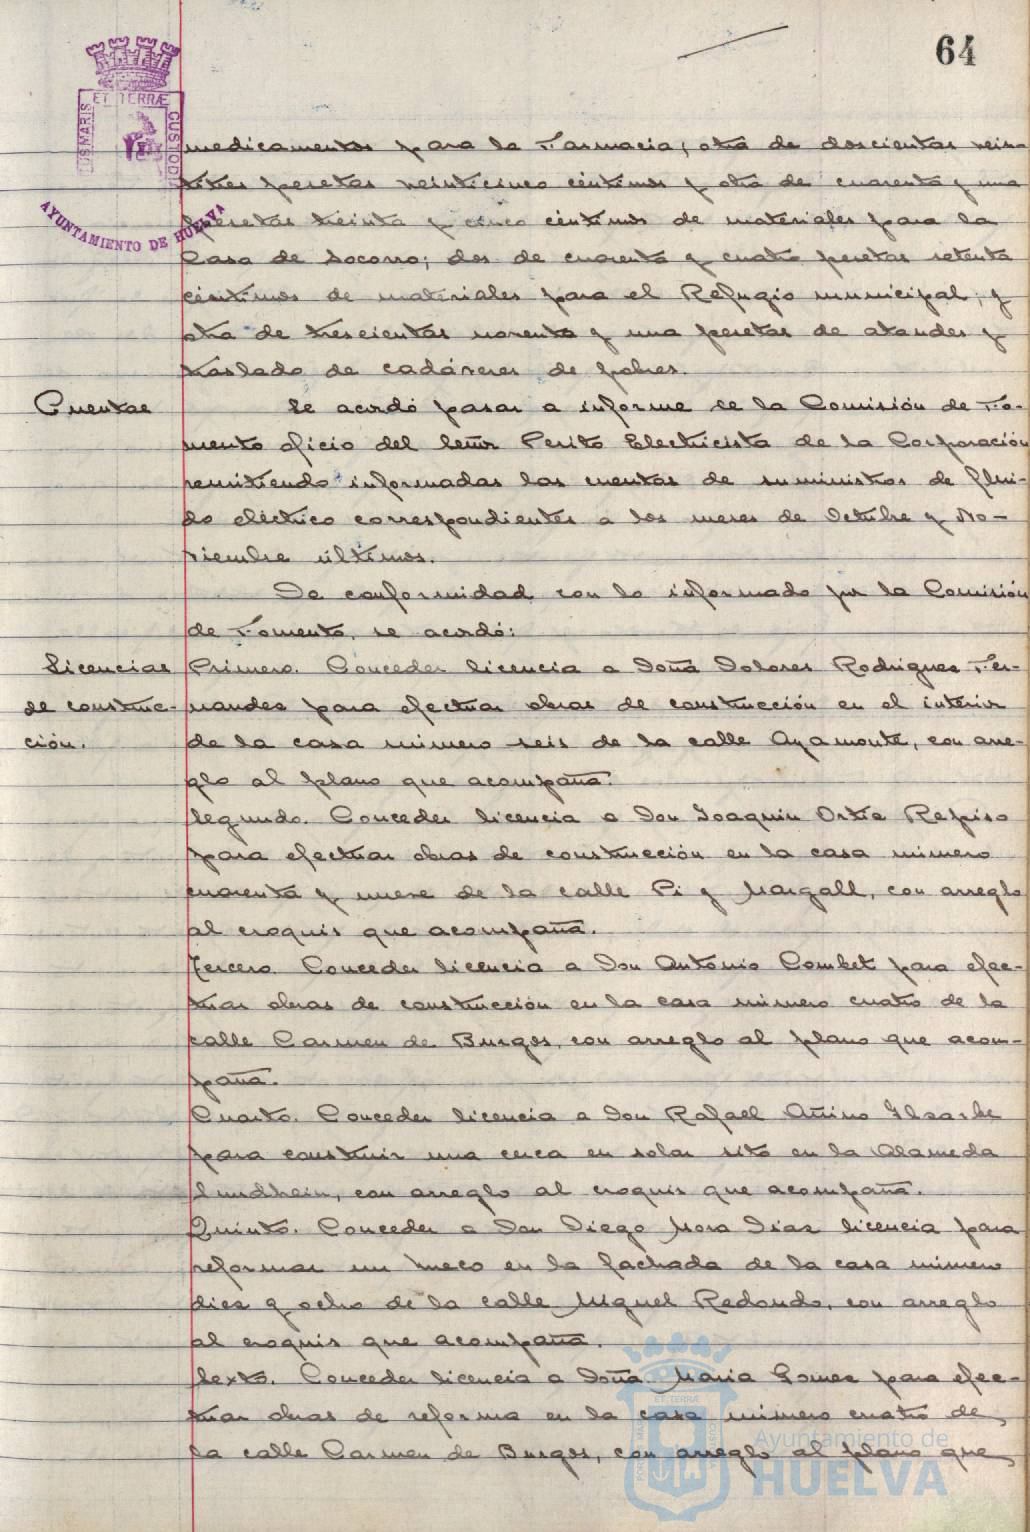 64
PORTUS MARIS ET TERRÆ CUSTODIA
AYUNTAMIENTO DE HUELVA
medicamentos para la Farmacia; otra de doscientas vein-
titres pesetas veinticinco céntimos y otra de cuarenta y una
pesetas treinta y cinco céntimos de materiales para la
Casa de Socorro; dos de cuarenta y cuatro pesetas setenta
céntimos de materiales para el Refugio municipal; y
otra de trescientas noventa y una pesetas de ataudes y
traslado de cadáveres de pobres.
Cuentas
Se acordó pasar a informe de la Comisión de Fo-
mento oficio del Señor Perito Electricista de la Corporación
remitiendo informadas las cuentas de suministros de flui-
do eléctrico correspondientes a los meses de Octubre y No-
viembre últimos.
De conformidad con lo informado por la Comisión
de Fomento, se acordó:
Licencias
de construc-
ción.
Primero. Conceder licencia a Doña Dolores Rodriguez Fer-
nandez para efectuar obras de construcción en el interior
de la casa número seis de la calle Ayamonte, con arre-
glo al plano que acompaña.
Segundo. Conceder licencia a Don Joaquin Ortiz Repiso
para efectuar obras de construcción en la casa número
cuarenta y nueve de la calle Pi y Margall, con arreglo
al croquis que acompaña.
Tercero. Conceder licencia a Don Antonio Combet para efec-
tuar obras de construcción en la casa número cuatro de la
calle Carmen de Burgos, con arreglo al plano que acom-
paña.
Cuarto. Conceder licencia a Don Rafael Añino Ylzarbe
para construir una cerca en solar sito en la Alameda
Sundhein, con arreglo al croquis que acompaña.
Quinto. Conceder a Don Diego Mora Diaz licencia para
reformar un hueco en la fachada de la casa número
diez y ocho de la calle Miguel Redondo, con arreglo
al croquis que acompaña.
Sexto. Conceder licencia a Doña Maria Gomez para efec-
tuar obras de reforma en la casa número cuatro de
la calle Carmen de Burgos, con arreglo al plano que
Ayuntamiento de
HUELVA